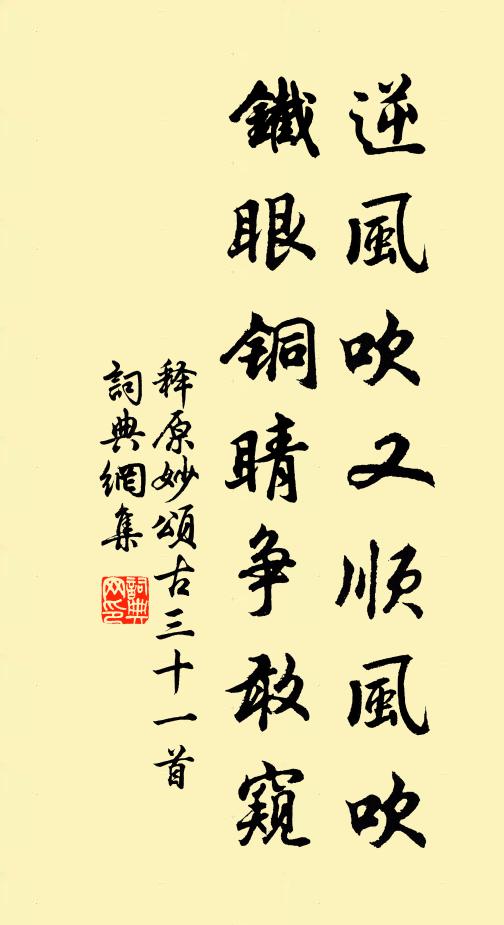 逆風吹又順風吹
鐵眼铜睛争敢窺
释原妙頌古三十一首
詞典網集
詞典網印